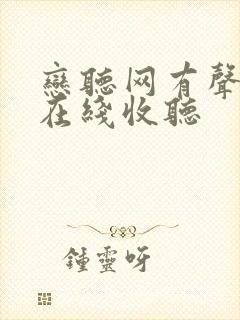 戀聽网有聲
在綫收聽
鍾靈呀